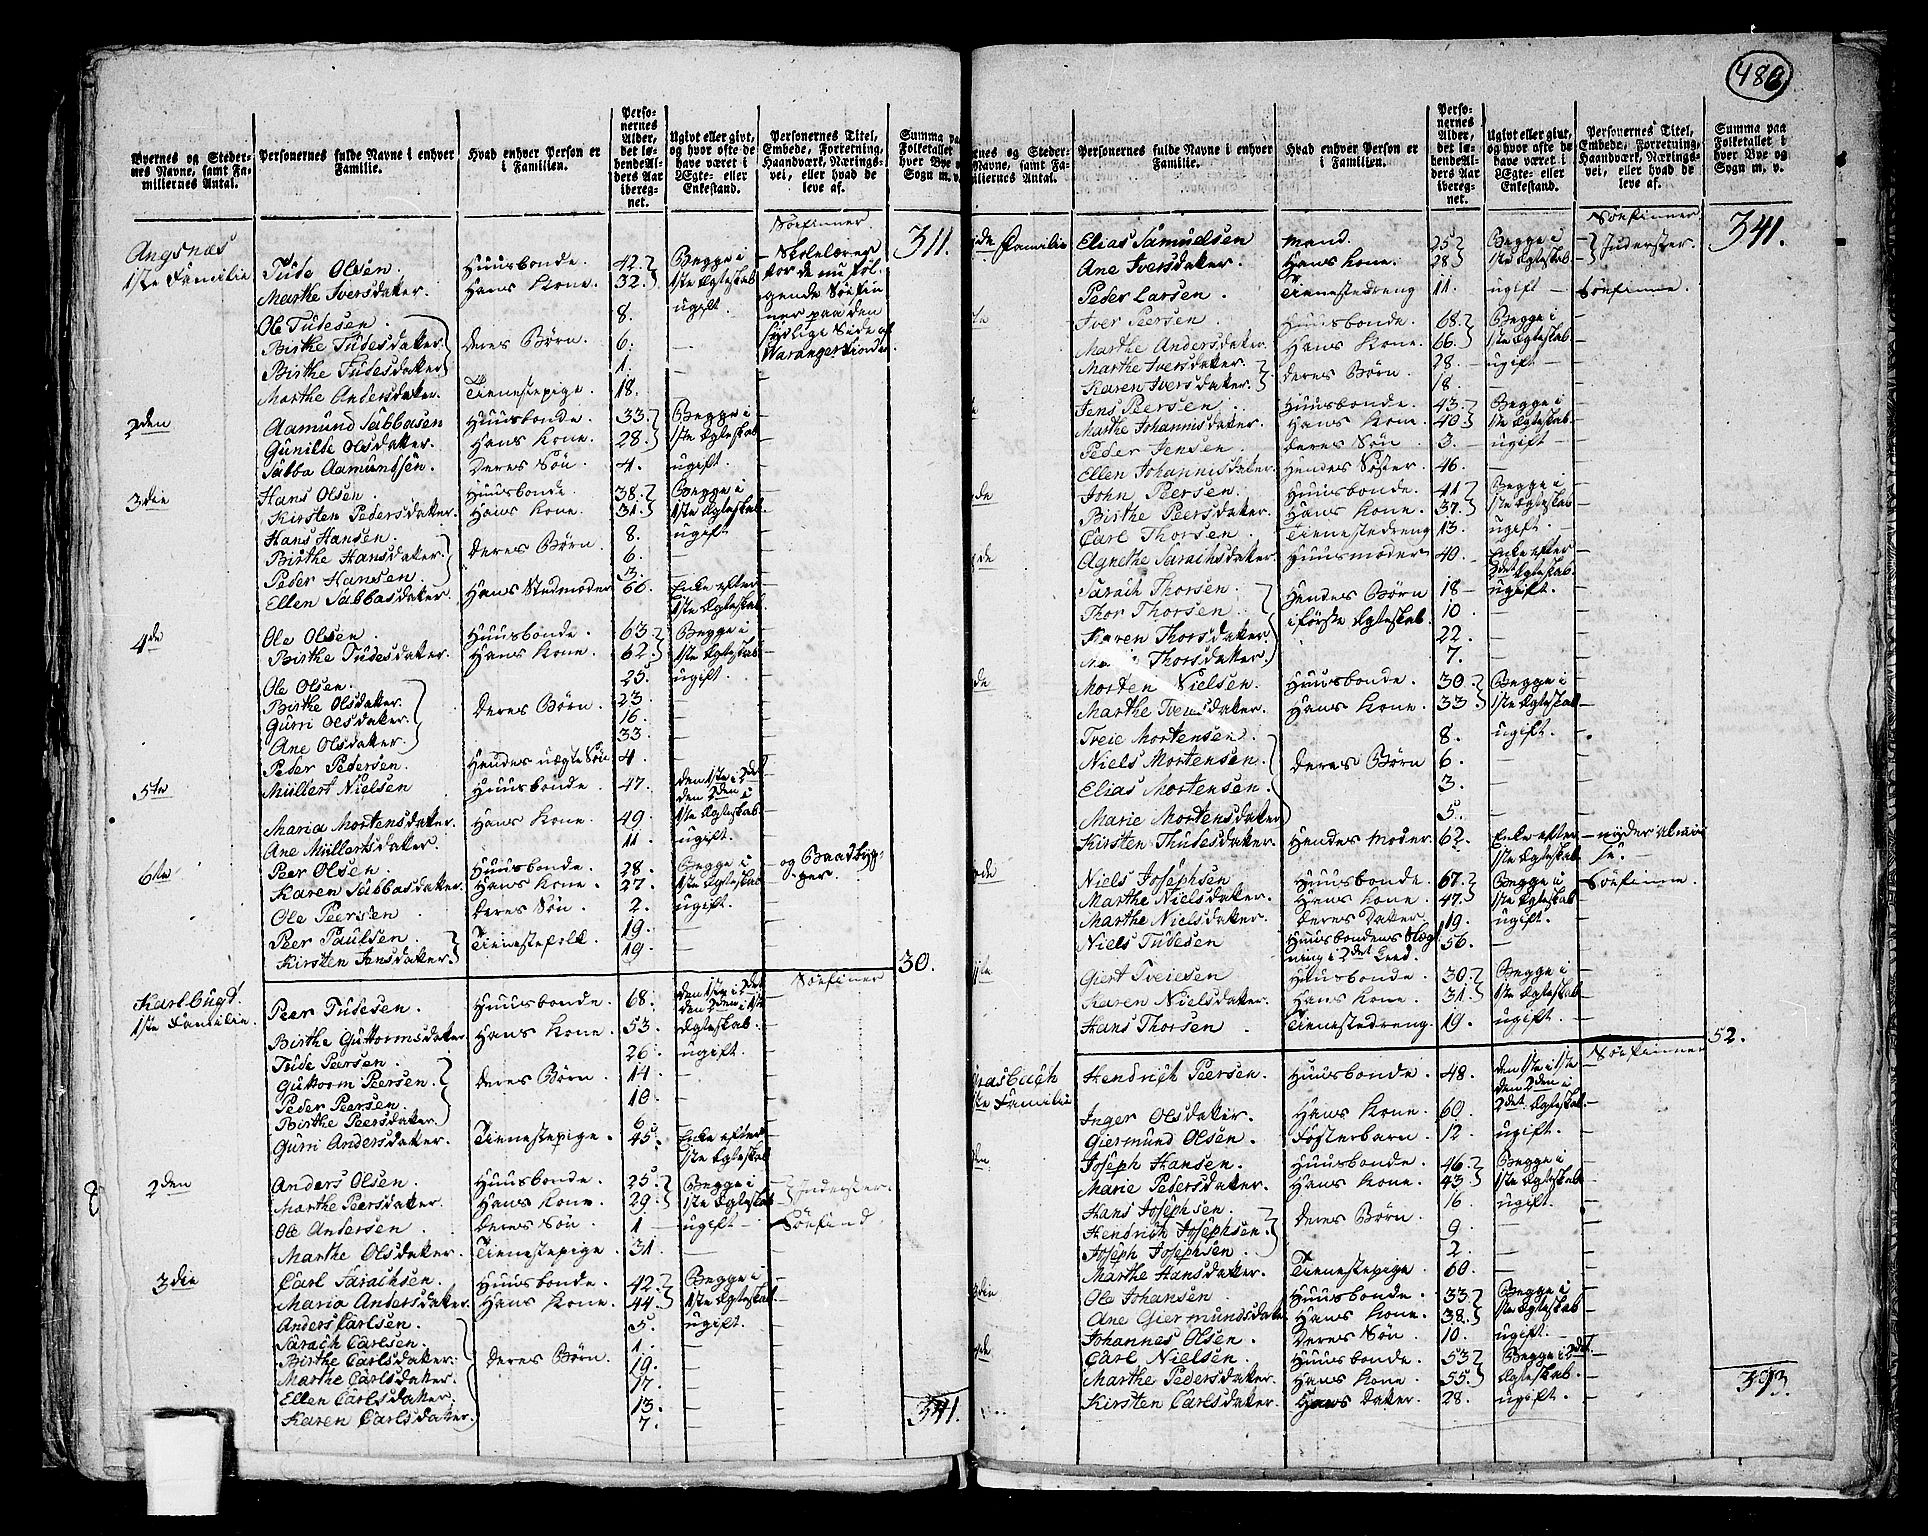 488.
Byernes og Steder-
nes Navne, samt Fa-
miliernes Antal.
Personernes fulde Navne i enhver
Familie.
Hvad enhver Person er
i Familien.
Perso-
nernes
Alder,
det lø-
bende Al-
ders Aar
iberegnet.
Ugivt eller givt,
og hvor ofte de
have været i
Ægte- eller
Enkestand.
Personernes Titel,
Embede, Forretning,
Haandværk, Nærings-
vei, eller hvad de
leve af.
Summa paa
Folketallet i
hver Bye og
Sogn m. v.
Søefinner
311.
Angsnæs
1ste Familie Tude Olsen. Huusbonde. 42. Begge i Skolelærer
Marthe Iversdatter. Hans Kone. 32. 1ste Ægteskab for de nu føl-
Ole Tudesen. 8. ugift gende Søefin
Birthe Tudesdatter deres Børn. 6. — ner paa den
Birthe Tudesdatter 1. — sydlige Side af
Warangerfiorden
Marthe Andersdatter. Tienestepige. 18. —
2den Aamund Sabbasen Huusbonde. 33. Begge i
Gunilde Olsdatter. Hans Kone. 28. 1ste Ægteskab
Sabba Aamundsen. deres Søn. 4. ugift.
3die Hans Olsen. Huusbonde. 38. Begge i
Kirsten Pedersdatter. Hans Kone. 31. 1ste Ægteskab
Hans Hansen. 8. ugift
Birthe Hansdatter. deres Børn. 6.
Peder Hansen. 3.
Ellen Sabbasdatter. Hans Stedmoder 66. Enke efter
1ste Ægteskab.
4de Ole Olsen. Huusbonde. 63. Begge i
Birthe Tudesdatter. Hans Kone. 62. 1ste Ægteskab
Ole Olsen. 25. ugift.
Birthe Olsdatter. deres Børn. 23. —
Gurri Olsdatter. 16. —
Ane Olsdatter. 33. —
Peder Pedersen. Hendes uægte Søn 4. —
5te Mullert Nielsen Huusbonde. 47. den 1ste i 2det
den 2den i
Maria Mortensdatter. Hans Kone. 49. 1ste Ægteskab.
Ane Mullertsdatter. 11. ugift.
6te Peer Olsen. Huusbonde. 28. Begge i og Baadbyg-
Karen Sabbasdatter. Hans Kone. 27. 1ste Ægteskab ger.
Ole Peersen. deres Søn. 2. ugift.
Peer Paulsen. Tienestefolk. 19. —
Kirsten Jensdatter. 19. —
30.
Søefiner
Karlbugt.
1ste Familie. Peer Tudesen. Huusbonde. 68. den 1ste i 2det
den 2den i 1ste
Birthe Guttormsdatter Hans Kone. 53. Ægteskab.
Tude Peersen. 26. ugift.
Guttorm Peersen. deres Børn. 14. —
Peder Peersen. 10. —
Birthe Peersdatter. 6. —
Gurri Andersdatter. Tienestepige. 45. Enke efter
1ste Ægteskab
2den Anders Olsen. Huusbonde. 25. Begge i Inderster.
Marthe Peersdatter. Hans Kone. 29. 1ste Ægteskab
Ole Andersen. deres Søn. 1 ugift Søefind.
Marthe Olsdatter. Tienestepige. 31. —
3die Carl Sarachsen. Huusbonde. 42. Begge i
Maria Andersdatter. Hans Kone. 44. 1ste Ægteskab.
Anders Carlsen. 5. ugift.
Sarach Carlsen. 1. —
Birthe Carlsdatter. deres Børn. 19. —
Marthe Carlsdatter. 17. —
Ellen Carlsdatter. 13. —
Karen Carlsdatter. 7. —
341.
ernes og Steder-
Navne, samt Fa-
iliernes Antal.
Personernes fulde Navne i enhver
Familie.
Hvad enhver Person er
i Familien.
Perso-
nernes
Alder,
det lø-
bende Al-
ders Aar
iberegnet.
Ugivt eller givt,
og hvor ofte de
have været i
Ægte- eller
Enkestand.
Personernes Titel,
Embede, Forretning,
Haandværk, Nærings-
vei, eller hvad de
leve af.
Summa paa
Folketallet i
hver Bye og
Sogn m. v.
Søefinner
341.
de Familie Elias Samuelsen Mand. 25 Begge i Inderster.
Ane Iversdatter. Hans Kone. 28 1ste Ægteskab
Peder Larsen. Tienestedreng 11. ugift Søefinne.
te Iver Peersen Huusbonde. 68. Begge i
Marthe Andersdatter. Hans Kone. 66. 1ste Ægteskab
Marthe Iversdatter. deres Børn. 28. ugift
Karen Iversdatter. 18. —
Jens Peersen. Huusbonde. 43. Begge i
Marthe Johannisdatter. Hans Kone. 40. 1ste Ægteskab
Peder Jensen. deres Søn. 3. ugift
Ellen Johannisdatter. Hendes Søster. 46. —
de John Peersen. Huusbonde. 41 Begge i
Birthe Peersdatter. Hans Kone. 37. 1ste Ægteskab
Carl Thorsen. Tienestedreng 13. ugift.
de Agnethe Sarachsdatter. Huusmoder 40. Enke efter
2det Ægteskab.
Sarach Thorsen. Hendes Børn 18 ugift.
Thor Thorsen i første Ægteskab. 10.
Karen Thorsdatter. 22. —
Thorsdatter. 7. —
de Morten Nielsen. Huusbonde. 30. Begge i
Marthe datter. Hans Kone. 33 1ste Ægteskab
Treie Mortensen. 8. ugift.
Niels Mortensen. deres Børn 6. —
Elias Mortensen. 3. —
Marie Mortensdatter 5. —
Kirsten Thudesdatter. Hendes Moder. 62. Enke efter nyder Almis
1ste Ægteskab se.
de Niels Josephsen Huusbonde. 67. Begge i Søefinne.
Marthe Nielsdatter. Hans Kone. 47. 1ste Ægteskab
Marthe Nielsdatter. deres Datter. 19. ugift.
Niels Tudesen Huusbondens Slæg
ning i 2det Leed. 56. —
Giert Treiesen Huusbonde. 30. Begge i
Karen Nielsdatter. Hans Kone. 31. 1ste Ægteskab
Hans Thorsen. Tienestedreng. 19. ugift.
52.
Søefinner
rasbach
ste Familie Hendrich Peersen. Huusbonde. 48. den 1ste i 1ste
den 2den i
Inger Olsdatter. Hans Kone. 60. 2det Ægteskab.
Giermund Olsen. Fosterbarn. 12. ugift.
den Joseph Hansen. Huusbonde. 46. Begge i
Marie Pedersdatter. Hans Kone. 43. 1ste Ægteskab
Hans Josephsen. 16 ugift.
Hendrich Josephsen. deres Børn. 9. —
Joseph Josephsen. 2. —
Marthe Hansdatter. Tienestepige 60. —
3die Ole Johansen. Huusbonde. 33 Begge i
Ane Giermundsdatter Hans Kone. 38. 1ste Ægteskab
Johannes Olsen. deres Søn. 10. ugift.
de Carl Nielsen. Huusbonde. 53 Begge i 2det
Marthe Pedersdatter. Hans Kone. 55. Ægteskab.
Kirsten Carlsdatter. Hans Datter. 28. ugift.
393.